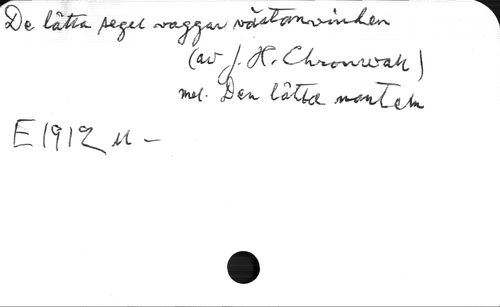 De lätta segel vaggar västanvinden
(av J. H. Chronwall)
mel. Den lätta manteln
E 1912 u -